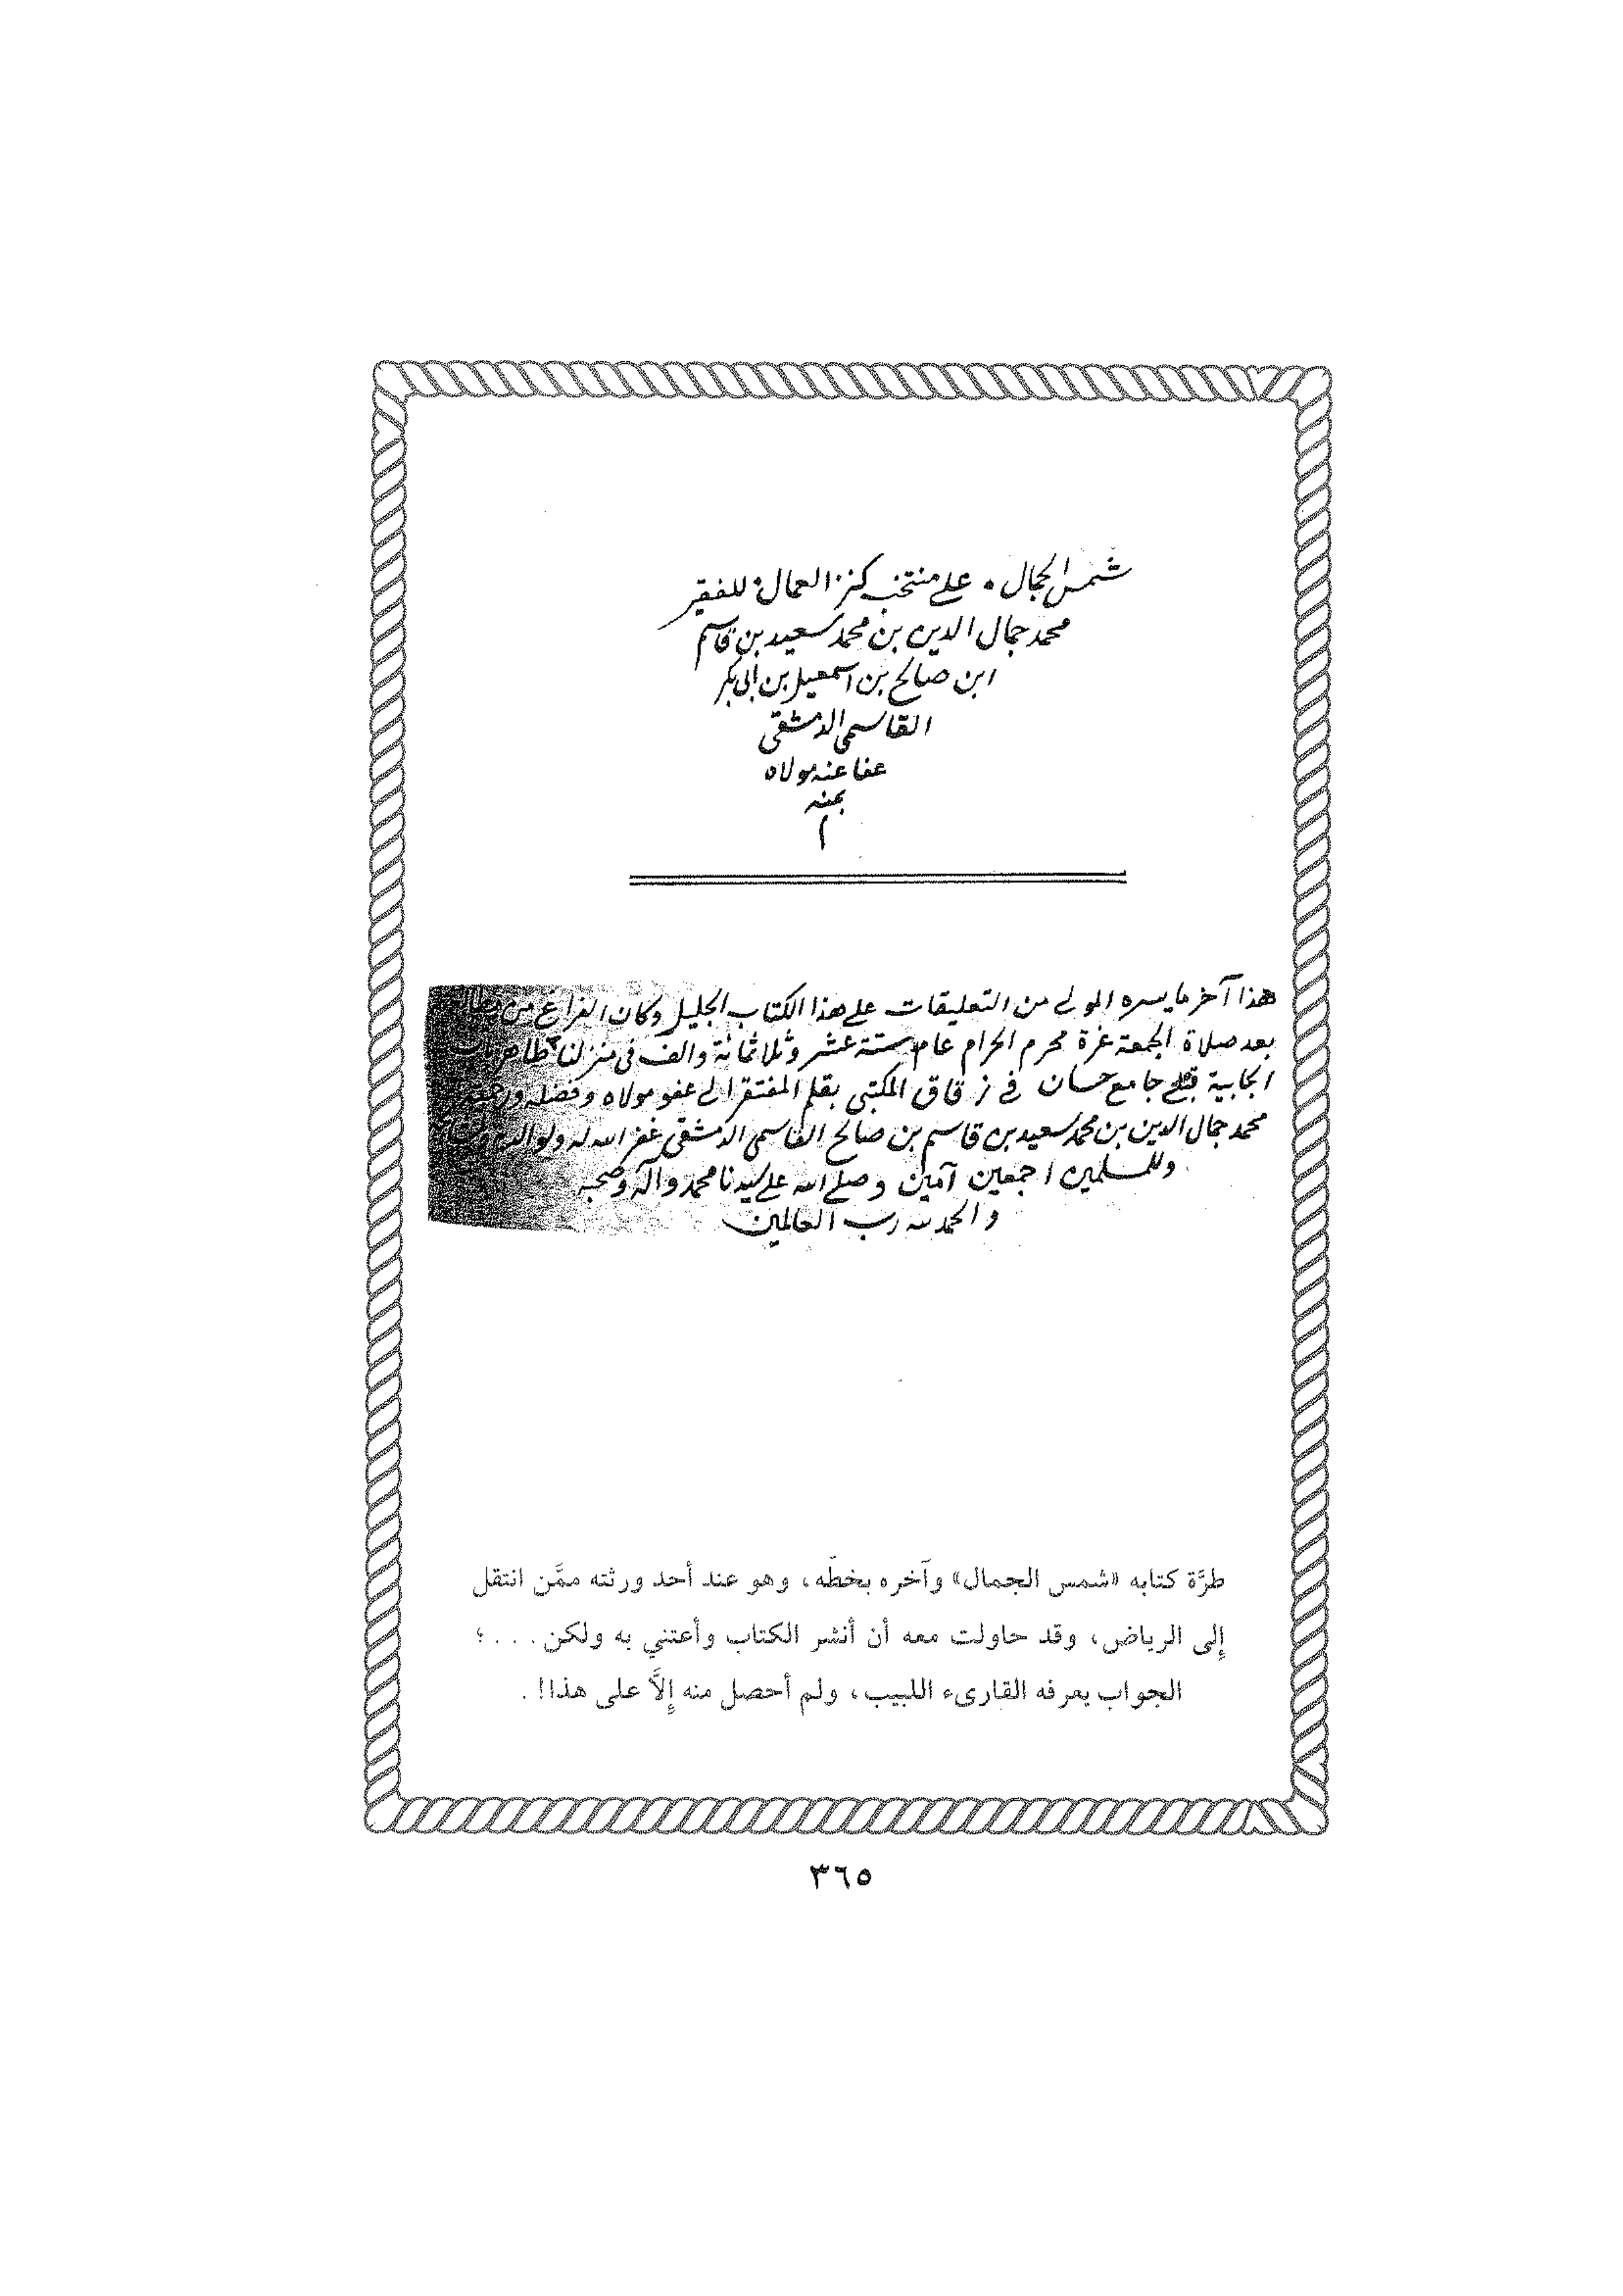 شمس الجمال • على منتخب كنز العمال • للفقير
محمد جمال الدين بن محمد سعيد بن قاسم
ابن صالح بن اسمعيل بن ابي بكر
القاسمي الدمشقي
عفا عنه مولاه
بمنه
هذا آخر ما يسره المولى من التعليقات على هذا الكتاب الجليل وكان الفراغ من
بعد صلاة الجمعة غرة محرم الحرام عام ستة عشر وثلاثمائة والف في منزلنا ظاهر باب
الجابية قبلي جامع حسان في زقاق المكتبي بقلم المفتقر الى عفو مولاه وفضله ورحمته
محمد جمال الدين بن محمد سعيد بن قاسم بن صالح القاسمي الدمشقي غفر الله له ولوالديه
وللمسلمين اجمعين آمين وصلى الله على سيدنا محمد وآله وصحبه
والحمد لله رب العالمين
طرَّة كتابه «شمس الجمال» وآخره بخطّه، وهو عند أحد ورثته ممَّن انتقل
إلى الرياض، وقد حاولت معه أن أنشر الكتاب وأعتني به ولكن . . . ؛
الجواب يعرفه القارىء اللبيب، ولم أحصل منه إلَّا على هذا! .
٣٦٥